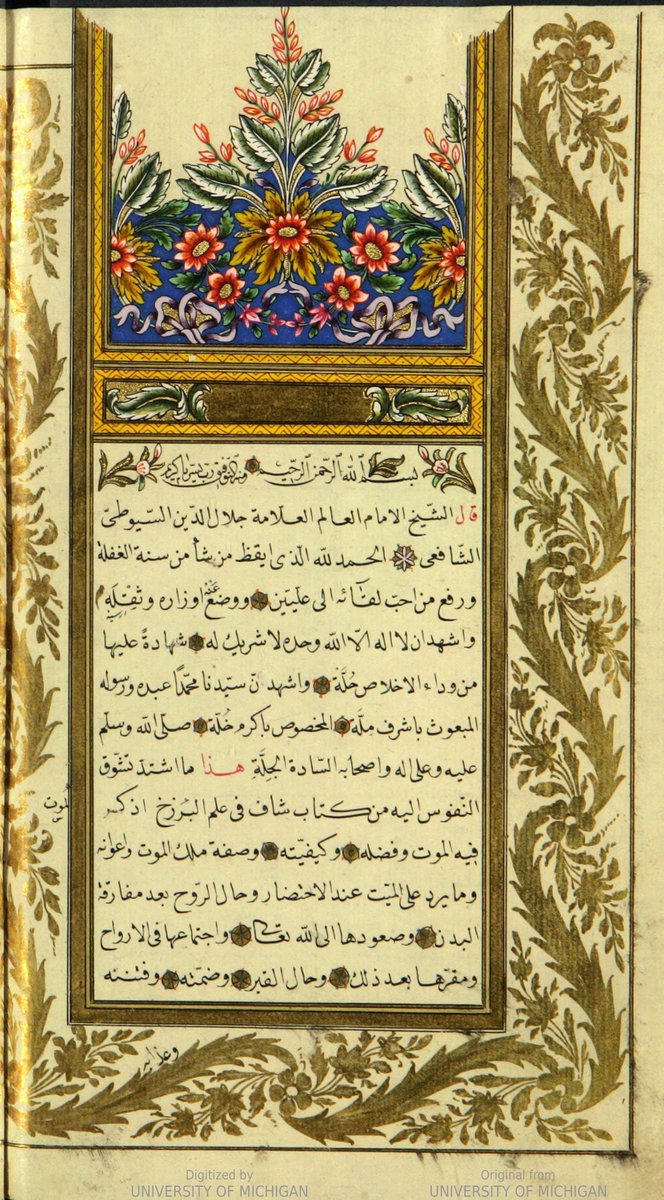 بسم الله الرحمن الرحيم
قال الشيخ الامام العالم العلامة جلال الدين السيوطى
الشافعى الحمد لله الذى ايقظ من شأ من سنة الغفلة
ورفع من احب لقائه الى عليين ووضع عنه اوزاره وثقله
واشهد ان لا اله الا الله وحده لا شريك له شهادةً عليها
من وداء الاخلاص حُلَّة واشهد ن سيدنا محمدًا عبده ورسوله
المبعوث باشرف ملّة المخصوص باكرم خُلّة صلى الله وسلم
عليه وعلى اله واصحابه السادة الجِلَّةِ هذا ما اشتد تشوّق
النفوس اليه من كتاب شاف فى علم البرزخ اذكر
الموت
فيه الموت وفضله وكيفيّته وصفة ملك الموت واعوانه
وما يرد على الميّت عند الاحتضار وحال الروح بعد مفارقة
البدن وصعودها الى الله تعالى واجتماعها فى الارواح
ومقرّها بعد ذلك وحال القبر وضمّته وفتنته
وعذابه
Digitized by
UNIVERSITY OF MICHIGAN
Original from
UNIVERSITY OF MICHIGAN